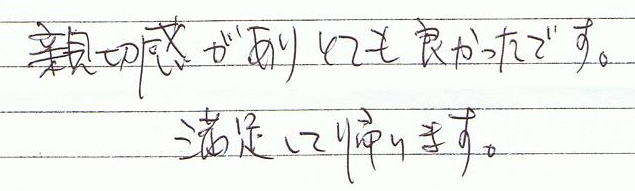 親切感がありとても良かったです。
満足して帰ります。